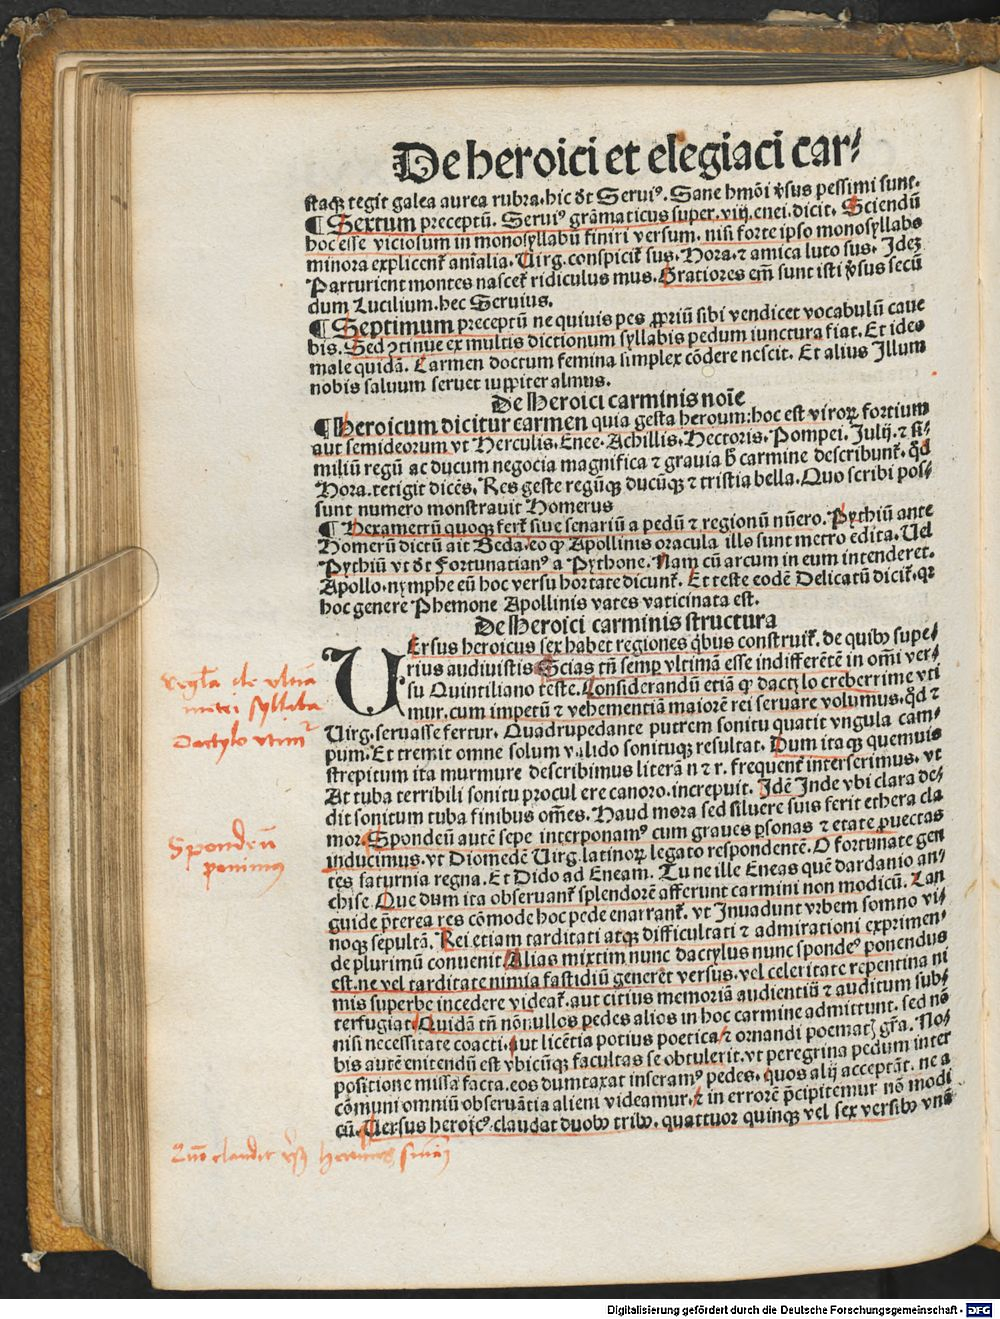 De heroici et elegiaci car⸗
staqꝫ tegit galea aurea rubra. hic dt̄ Seruiꝰ. Sane hmōi v̓sus pessimi sunt.
¶ Sextum preceptū. Seruiꝰ grāmaticus super. viij. enei. dicit. Sciendū
hoc esse viciosum in monosyllabū finiri versum. nisi forte ipso monosyllabo
minora explicent᷑ anīalia. Uirg. conspicit᷑ sus. Hora. ⁊ amica luto sus. Ideꝫ
Parturient montes nascet᷑ ridiculus mus. Gratiores em̄ sunt isti v̓sus secū
dum Lucilium. hec Seruius.
¶ Septimum preceptū ne quiuis pes ꝓpriū sibi vendicet vocabulū caue
bis. Sed ↄtinue ex multis dictionum syllabis pedum iunctura fiat. Et ideo
male quidā. Carmen doctum femina simplex cōdere nescit. Et alius Illum
nobis saluum seruet iuppiter almus.
De Heroici carminis noīe
¶ Heroicum dicitur carmen quia gesta heroum: hoc est viroꝝ fortium
aut semideorum vt Herculis. Enee. Achillis. Hectoris. Pompei. Julij. ⁊ si⸗
miliū regū ac ducum negocia magnifica ⁊ grauia h̄ carmine describunt᷑. qd̄
Hora. tetigit dicēs. Res geste regūqꝫ ducūqꝫ ⁊ tristia bella. Quo scribi pos⸗
sunt numero monstrauit Homerus
¶ Hexametrū quoqꝫ fert᷑ siue senariū a pedū ⁊ regionū nūero. Pythiū ante
Homerū dictū ait Beda. eo ꝙ Apollinis oracula illo sunt metro edita. Uel
Pythiū vt dt̄ Fortunatianꝰ a Pythone. Nam cū arcum in eum intenderet.
Apollo. nymphe eū hoc versu hortate dicunt᷑. Et teste eodē Delicatū dicit᷑. qꝛ
hoc genere Phemone Apollinis vates vaticinata est.
De Heroici carminis structura
UErsus heroicus sex habet regiones qͥbus construit᷑. de quibꝫ supe⸗
rius audiuistis Scias tn̄ semꝑ vltimā esse indifferētē in om̄i ver⸗
su Quintiliano teste. Considerandū etiā ꝙ dactylo creberrime vti
mur. cum impetū ⁊ vehementiā maiorē rei seruare volumus. qd̄ ⁊
Uirg. seruasse fertur. Quadrupedante putrem sonitu quatit vngula cam⸗
pum. Et tremit omne solum valido sonituqꝫ resultat. Dum itaqꝫ quemuis
strepitum ita murmure describimus literā n ⁊ r. frequent᷑ interserimus. vt
At tuba terribili sonitu procul ere canoro. increpuit. Idē Inde vbi clara de⸗
dit sonitum tuba finibus om̄es. Haud mora sed siluere suis ferit ethera cla
mor. Spondeū autē sepe interponamꝰ cum graues ꝑsonas ⁊ etate ꝓuectas
inducimus. vt Diomedē Uirg. latinoꝝ legato respondentē. O fortunate gen
tes saturnia regna. Et Dido ad Eneam. Tu ne ille Eneas quē dardanio an⸗
chise. Que dum ita obseruant᷑ splendorē afferunt carmini non modicū. Lan
guide p̄terea res cōmode hoc pede enarrant᷑. vt Inuadunt vrbem somno vi⸗
noqꝫ sepultā. Rei etiam tarditati atqꝫ difficultati ⁊ admirationi exprimen⸗
de plurimū conuenit Alias mixtim nunc dactylus nunc spondeꝰ ponendus
est. ne vel tarditate nimia fastidiū generet versus. vel celeritate repentina ni
mis superbe incedere videat᷑. aut citius memoriā audientiū ⁊ auditum sub⸗
terfugiat Quidā tn̄ nōnullos pedes alios in hoc carmine admittunt. sed nō
nisi necessitate coacti. aut licētia potius poetica ⁊ ornandi poematꝭ gr̄a. No⸗
bis autē enitendū est vbicūqꝫ facultas se obtulerit. vt peregrina pedum inter
positione missa facta. eos dumtaxat inseramꝰ pedes. quos alij acceptāt. ne a
cōmuni omniū obseruātia alieni videamur. ⁊ in errorē p̄cipitemur nō modi
cū. Uersus heroicꝰ claudat duobꝫ tribꝫ. quattuor quinqꝫ vel sex versibꝫ vnā
regl̄a de vltīa
metri syllaba
Dactylo vtimr̄
Spondeū
ponimus